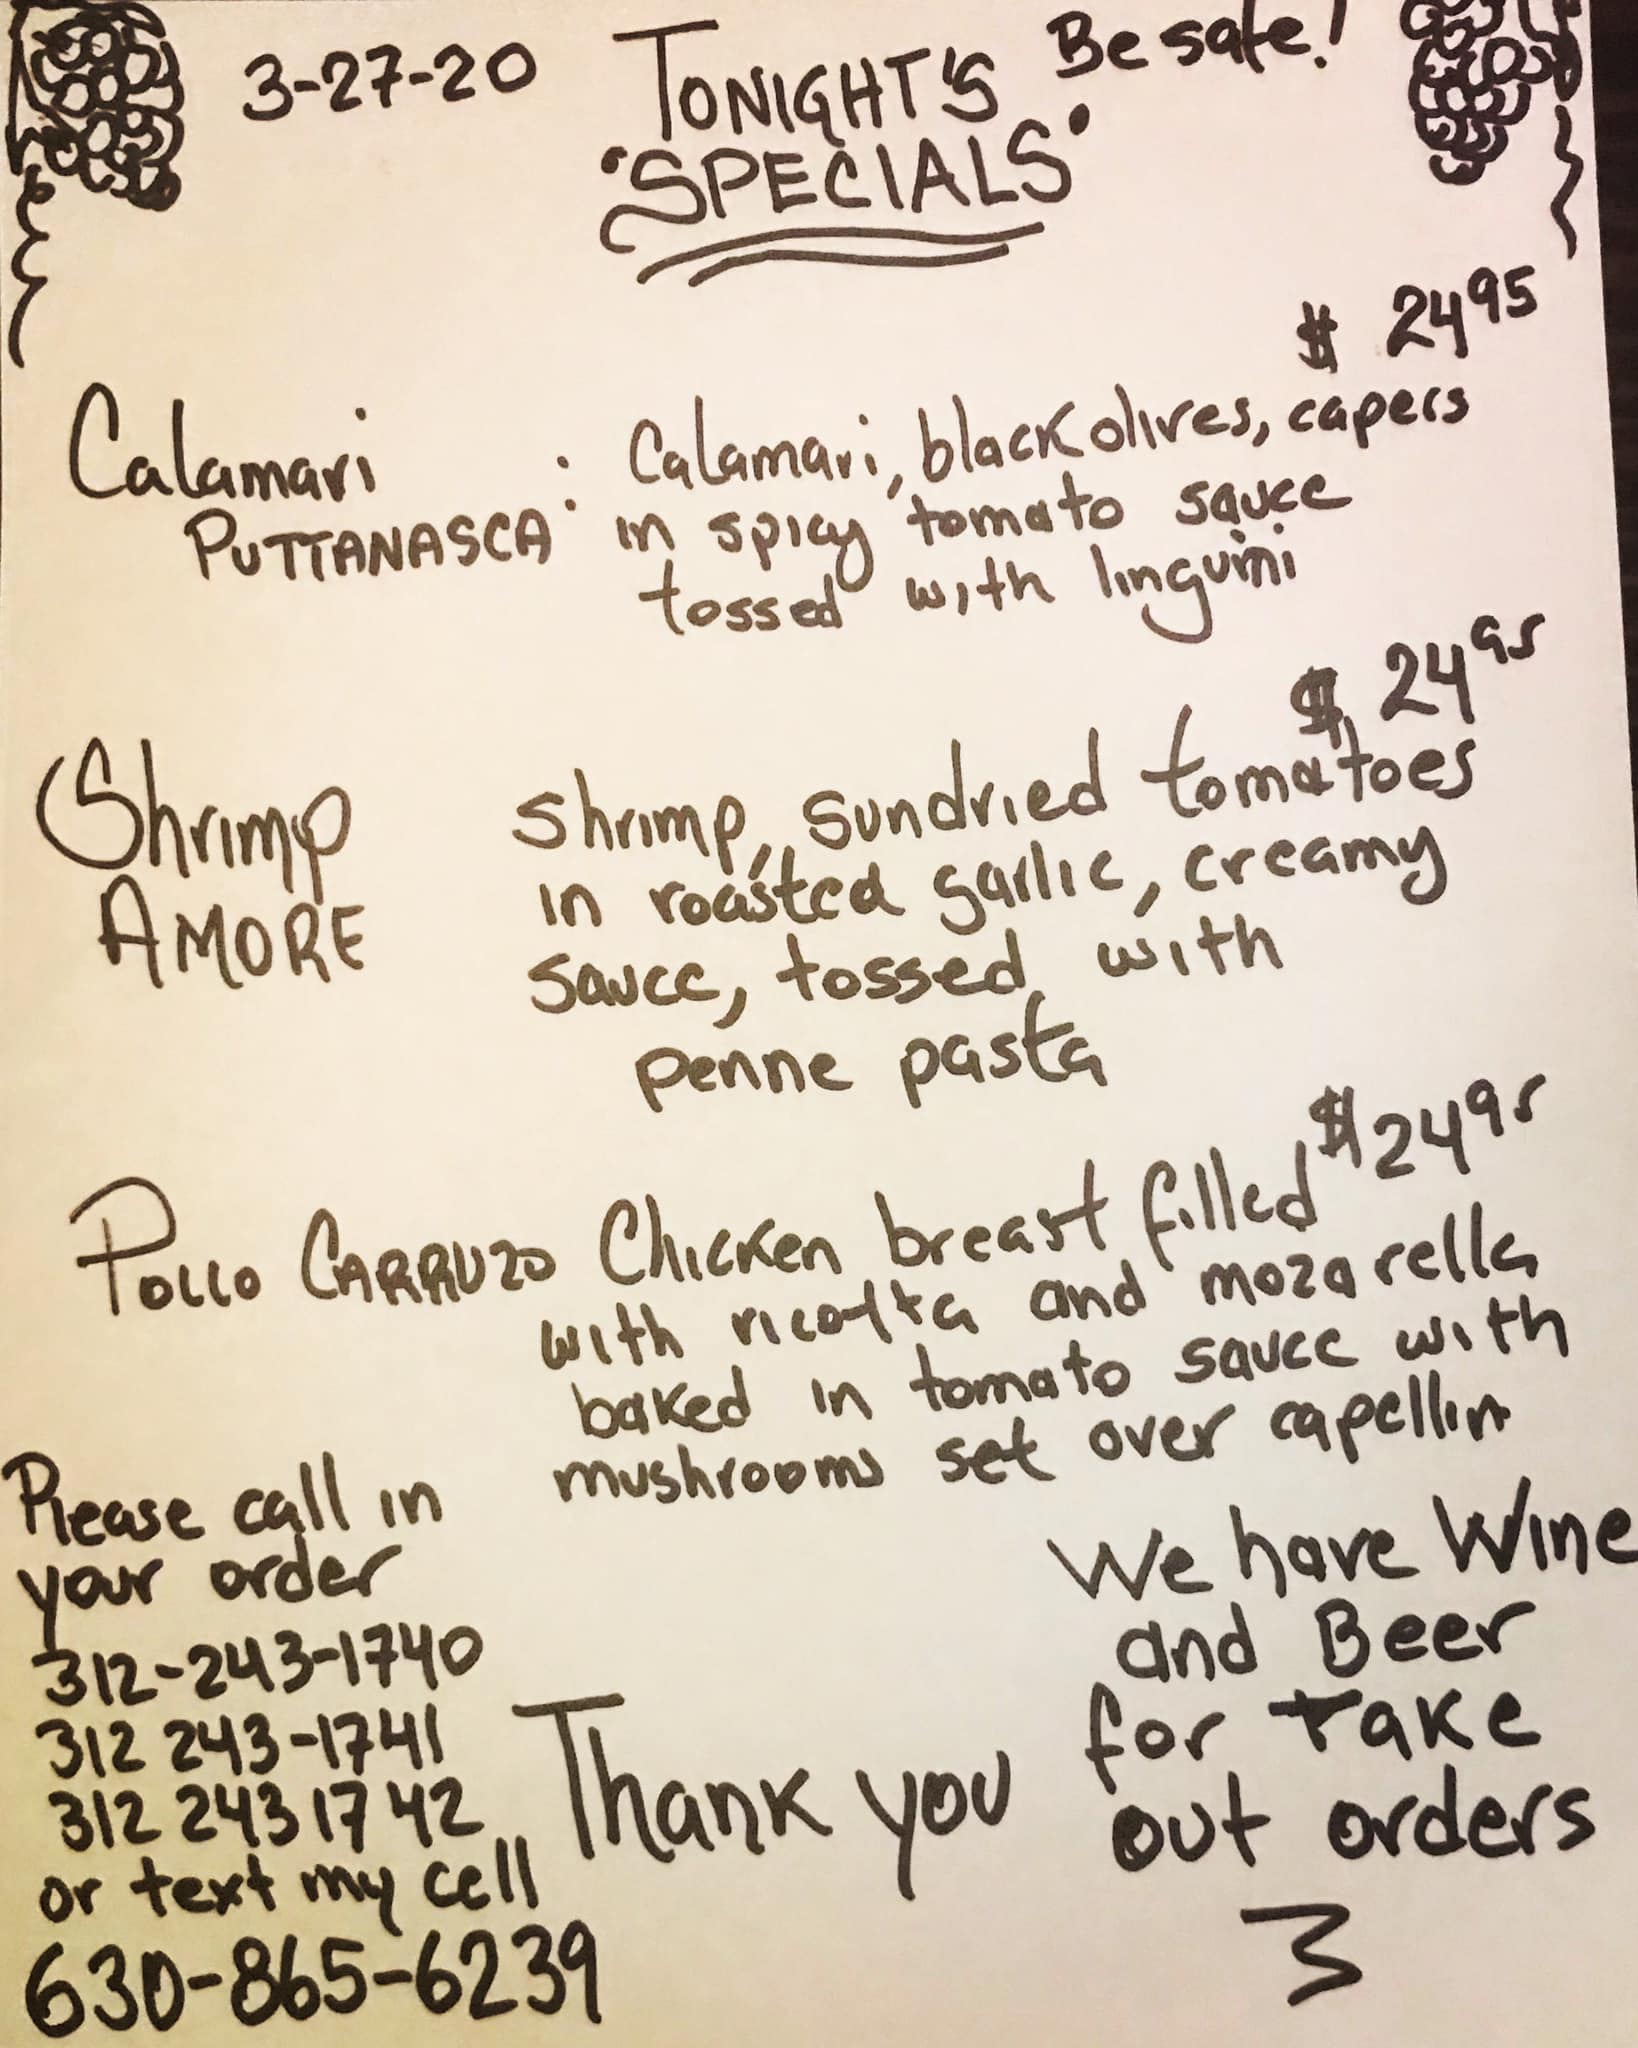 3-27-20 TONIGHT'S Be safe!
'SPECIALS'
$ 24 95
Calamari : Calamari, black olives, capers
PUTTANASCA in spicy tomato sauce
tossed with linguini
$ 24 95
Shrimp shrimp, sundried tomatoes
AMORE in roasted garlic, creamy
sauce, tossed with
penne pasta
$ 24 95
POLLO CARRUZO Chicken breast filled
with ricotta and mozarella
baked in tomato sauce with
mushrooms set over capellini
Please call in
your order
312-243-1740
312 243-1741
312 243 1742
or text my cell
630-865-6239
Thank you
We have Wine
and Beer
for take
out orders